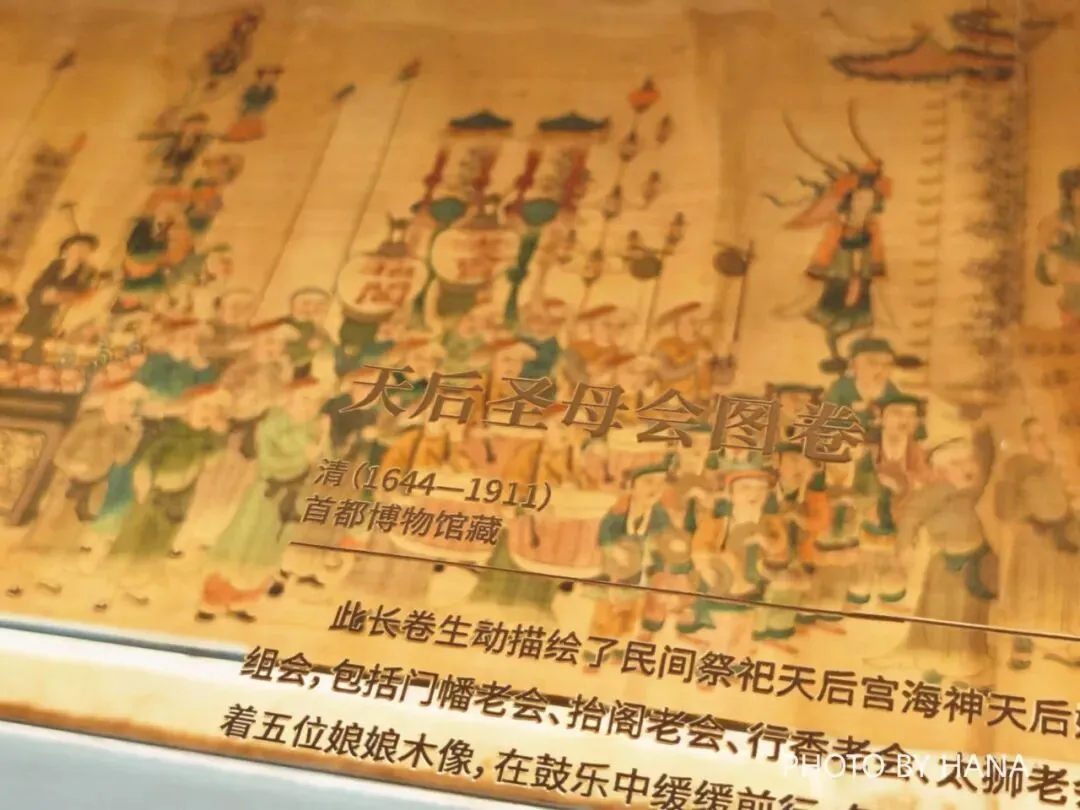 天后圣母会图卷
清(1644—1911)
首都博物馆藏
此长卷生动描绘了民间祭祀天后宫海神天后
组会,包括门幡老会、抬阁老会、行香老会、太狮老
着五位娘娘木像,在鼓乐中缓缓前行
PHOTO BY HANA